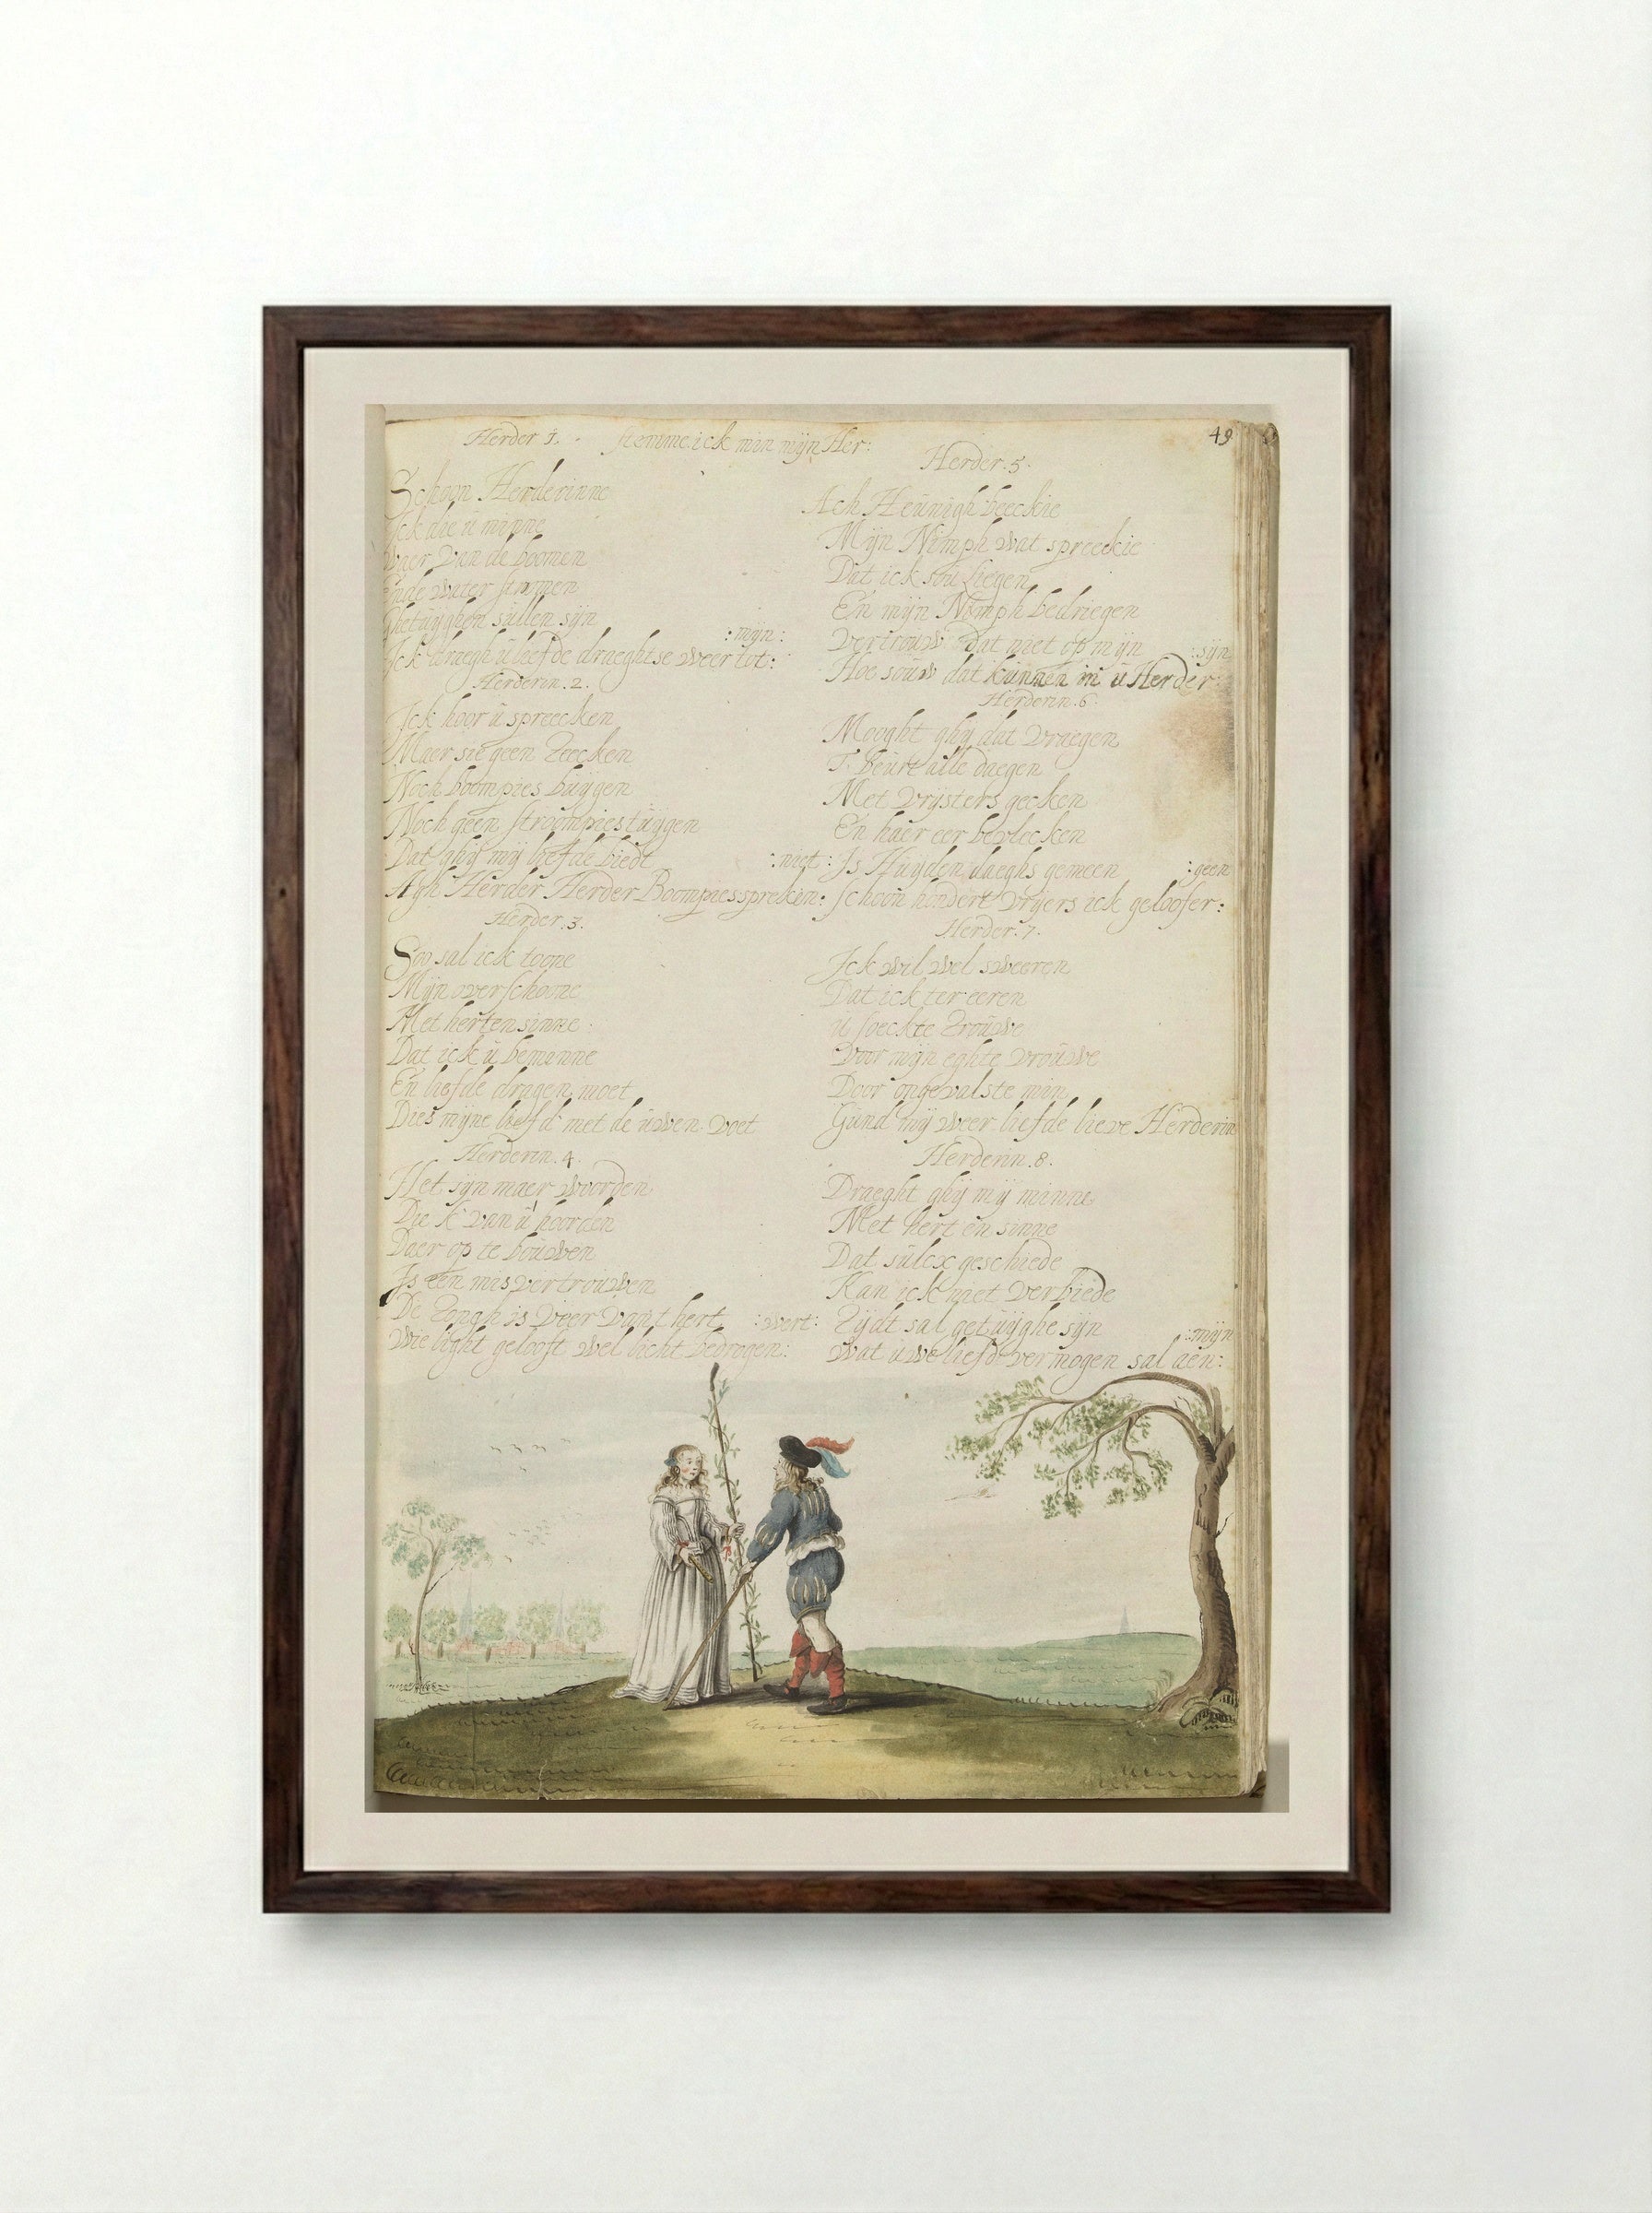 Herder 1. stemme. ick min mijn Her:
Schoon Herderinne
Ick die u minne
Waer van de boomen
Ende water stromen
Ghetuyghen sullen sijn
:mijn:
Ick draegh u liefde draeghtse weer tot:
Herderin. 2.
Ick hoor u spreecken
Maer sie geen Teecken
Noch boompies buygen
Noch geen stroompies tuygen
Dat ghij mij liefde biedt
:niet:
Agh Herder Herder Boompies spreken:
Herder. 3.
Soo sal ick toone
Mijn overschoone
Met herten sinne
Dat ick u beminne
En liefde dragen moet
Dies mijne liefd' met de uwen. Voet
Herderin. 4.
Het sijn maer woorden
Die k' van u hoorden
Daer op te bouwen
Is een misvertrouwen
De Tongh is veer van't hert
:wert:
Wie light gelooft wel licht bedrogen:
49
Herder. 5.
Ach Heunigh beeckie
Mijn Nimph wat spreeckie
Dat ick sou liegen
En mijn Nimph bedriegen
Vertrouw dat niet op mijn
:sijn
Hoe souw dat kunnen in u Herder:
Herderin. 6.
Mooght ghij dat Vraegen
T. Beurt alle daegen
Met Vrijsters gecken
En haer eer bevlecken
Is Huyden daeghs gemeen
:geen
schoon hondert Vrijers ick geloofer:
Herder. 7.
Ick wil wel sweeren
Dat ick ter eeren
u soeckte Trouwe
Voor mijn eghte Vrouwe
Door ongevalste min
Gund mij weer liefde lieve Herderin
Herderin. 8.
Draeght ghij mij minne
Met hert en sinne
Dat sulcx geschiede
Kan ick niet verbiede
Tijdt sal getuyghe sijn
:mijn
Wat uwe liefde vermogen sal aen: